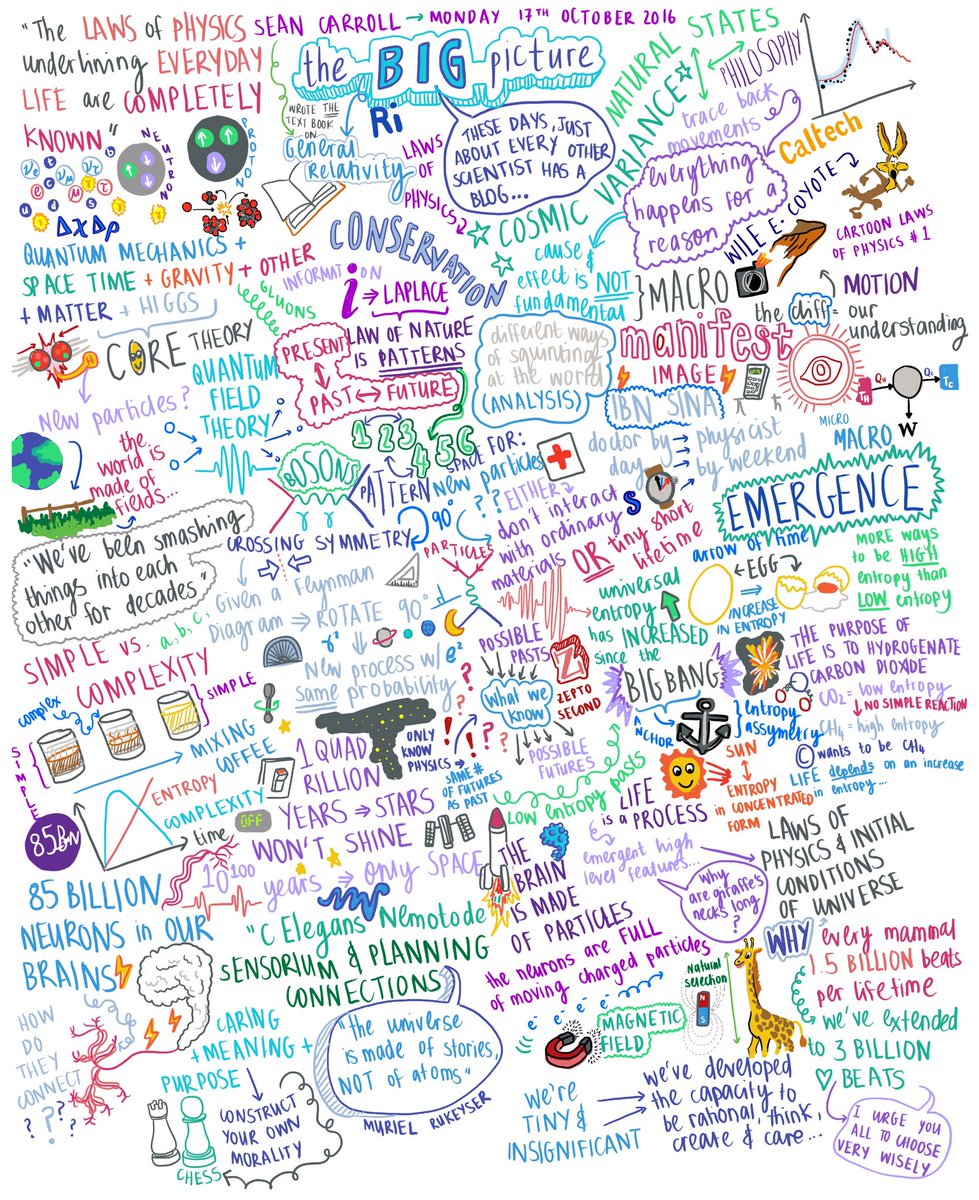 "The LAWS of PHYSICS
underlining EVERYDAY
LIFE are COMPLETELY
KNOWN"
SEAN CARROLL → MONDAY 17TH OCTOBER 2016
the BIG picture
WROTE THE
TEXT BOOK
ON
General
Relativity
Ri
THESE DAYS, JUST
ABOUT EVERY OTHER
SCIENTIST HAS A
BLOG...
LAWS
OF
PHYSICS
NATURAL STATES
COSMIC VARIANCE
PHILOSOPHY
trace back
movements
everything
happens for a
reason
Caltech
WILE E. COYOTE
CARTOON LAWS
OF PHYSICS #1
NEUTRON
PROTON
ΔxΔp
QUANTUM MECHANICS +
SPACE TIME + GRAVITY + OTHER
+ MATTER + HIGGS
GLUONS
CORE THEORY
New particles?
CONSERVATION
INFORMATION
i → LAPLACE
LAW OF NATURE
IS PATTERNS
PRESENT
PAST ↔ FUTURE
1 2 3 4 5 6
cause &
effect is NOT
fundamental
}MACRO
MOTION
the diff = our
understanding
different ways
of squinting
at the world
(ANALYSIS)
manifest
IMAGE
IBN SINA
doctor by → physicist
day → by weekend
TH
QH
QC
TC
W
MICRO
MACRO
EMERGENCE
QUANTUM
FIELD
THEORY
the
world is
made of
fields...
BOSONS
γ γ
PATTERN
SPACE FOR:
new particles
??
EITHER
don't interact
with ordinary
materials
OR tiny short
lifetime
S
"We've been smashing
things into each
other for decades"
CROSSING SYMMETRY
90°
PARTICLES
Given a Feynman
Diagram → ROTATE 90°
New process w/
same probability
γ²
e²
arrow of time
←EGG→
INCREASE
IN ENTROPY
MORE WAYS
to be HIGH
entropy than
LOW entropy
universal
entropy
has INCREASED
since the
BIG BANG
ANCHOR
entropy
assymetry
THE PURPOSE OF
LIFE IS TO HYDROGENATE
CARBON DIOXIDE
CO₂ = low entropy
NO SIMPLE REACTION
CH₄ = high entropy
© wants to be CH₄
LIFE depends on an increase
in entropy...
SIMPLE vs. a,b,c,
COMPLEXITY
SIMPLE
complex
SIMPLE
MIXING
COFFEE
ENTROPY
COMPLEXITY
time
POSSIBLE
PASTS
What we
know
POSSIBLE
FUTURES
Z
ZEPTO
SECOND
ONLY
KNOW
PHYSICS
SAME #
OF FUTURES
AS PAST
low entropy pasts
1 QUAD
RILLION
YEARS ⇒ STARS
WON'T SHINE
OFF
10¹⁰⁰
years ⇒ only SPACE
SUN
ENTROPY
IN CONCENTRATED
FORM
LIFE
is a PROCESS
emergent high
level features...
why
are giraffe's
necks long
?
LAWS OF
PHYSICS & INITIAL
CONDITIONS
OF UNIVERSE
85BN
85 BILLION
NEURONS in OUR
BRAINS
HOW
DO
THEY
CONNECT
???
"C Elegans Nemotode
SENSORIUM & PLANNING
CONNECTIONS
THE
BRAIN
IS MADE
OF PARTICLES
the neurons are FULL
of moving charged particles
e⁻ e⁻ e⁻
MAGNETIC
FIELD
Natural
selection
N
S
WHY
every mammal
1.5 BILLION beats
per lifetime
we've extended
to 3 BILLION
♡ BEATS
I URGE YOU
ALL TO CHOOSE
VERY WISELY
CARING
+ MEANING +
PURPOSE
CONSTRUCT
YOUR OWN
MORALITY
CHESS
"the universe
is made of stories,
NOT of atoms"
MURIEL RUKEYSER
we're
TINY &
INSIGNIFICANT
we've developed
the capacity to
be rational, think,
create & care...